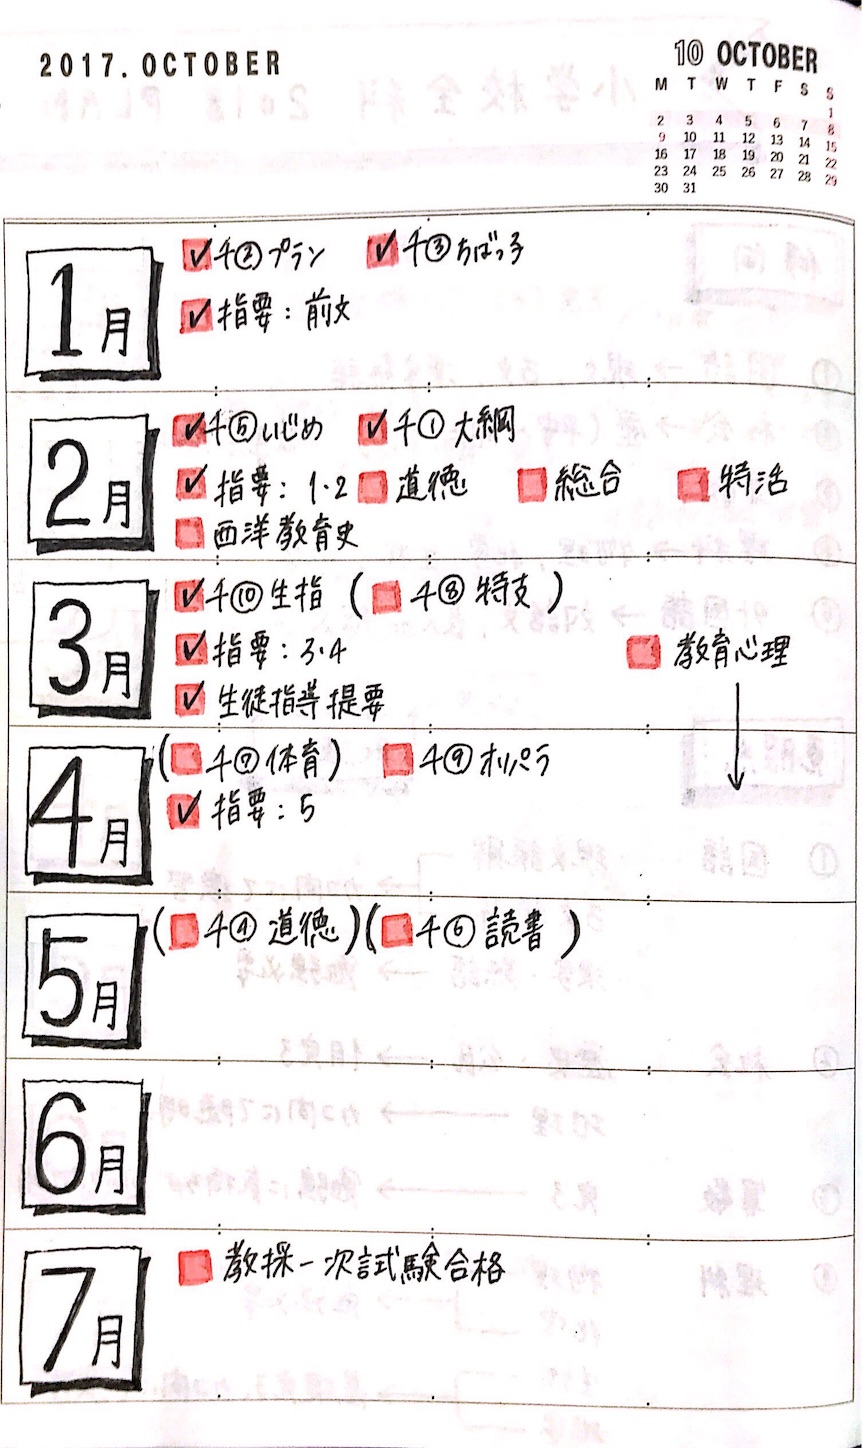 2017. OCTOBER
10 OCTOBER
M T W T F S S
1
2 3 4 5 6 7 8
9 10 11 12 13 14 15
16 17 18 19 20 21 22
23 24 25 26 27 28 29
30 31
1月
チ②プラン チ③ちばっ子
指要：前文
2月
チ⑤いじめ チ①大綱
指要：1・2 道徳 総合 特活
西洋教育史
3月
チ⑩生指 (チ⑧特支)
指要：3・4 教育心理
生徒指導提要
4月
(チ⑦体育) チ⑨オリパラ
指要：5
5月
(チ④道徳)(チ⑥読書)
6月
7月
教採一次試験合格